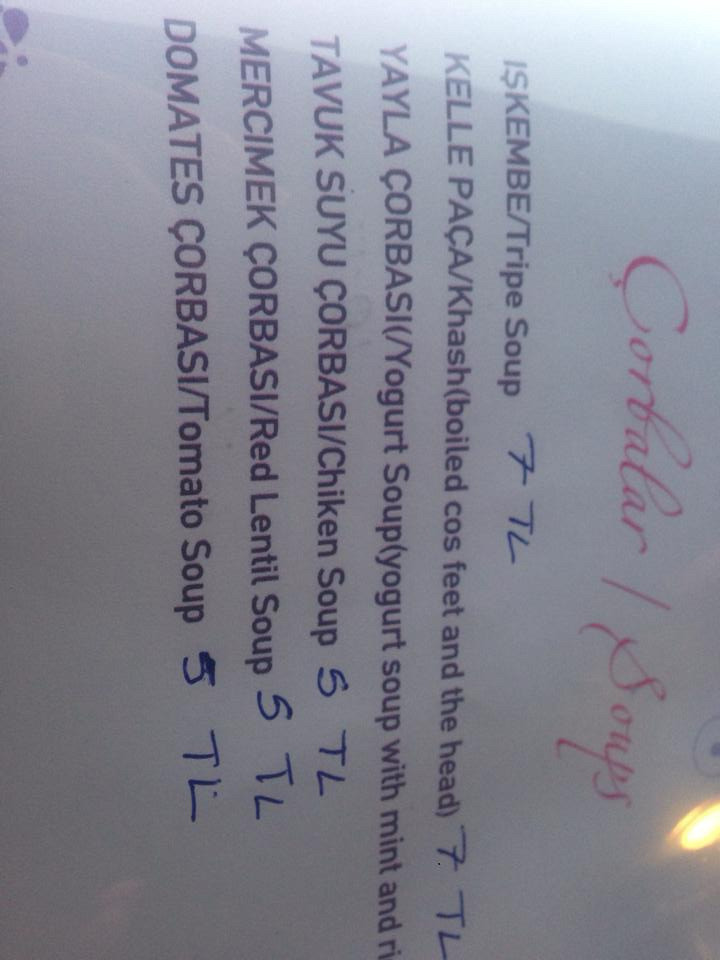 Çorbalar / Soups
IŞKEMBE/Tripe Soup 7 TL
KELLE PAÇA/Khash(boiled cos feet and the head) 7 TL
YAYLA ÇORBASI(/Yogurt Soup(yogurt soup with mint and ri
TAVUK SUYU ÇORBASI/Chiken Soup 5 TL
MERCIMEK ÇORBASI/Red Lentil Soup 5 TL
DOMATES ÇORBASI/Tomato Soup 5 TL